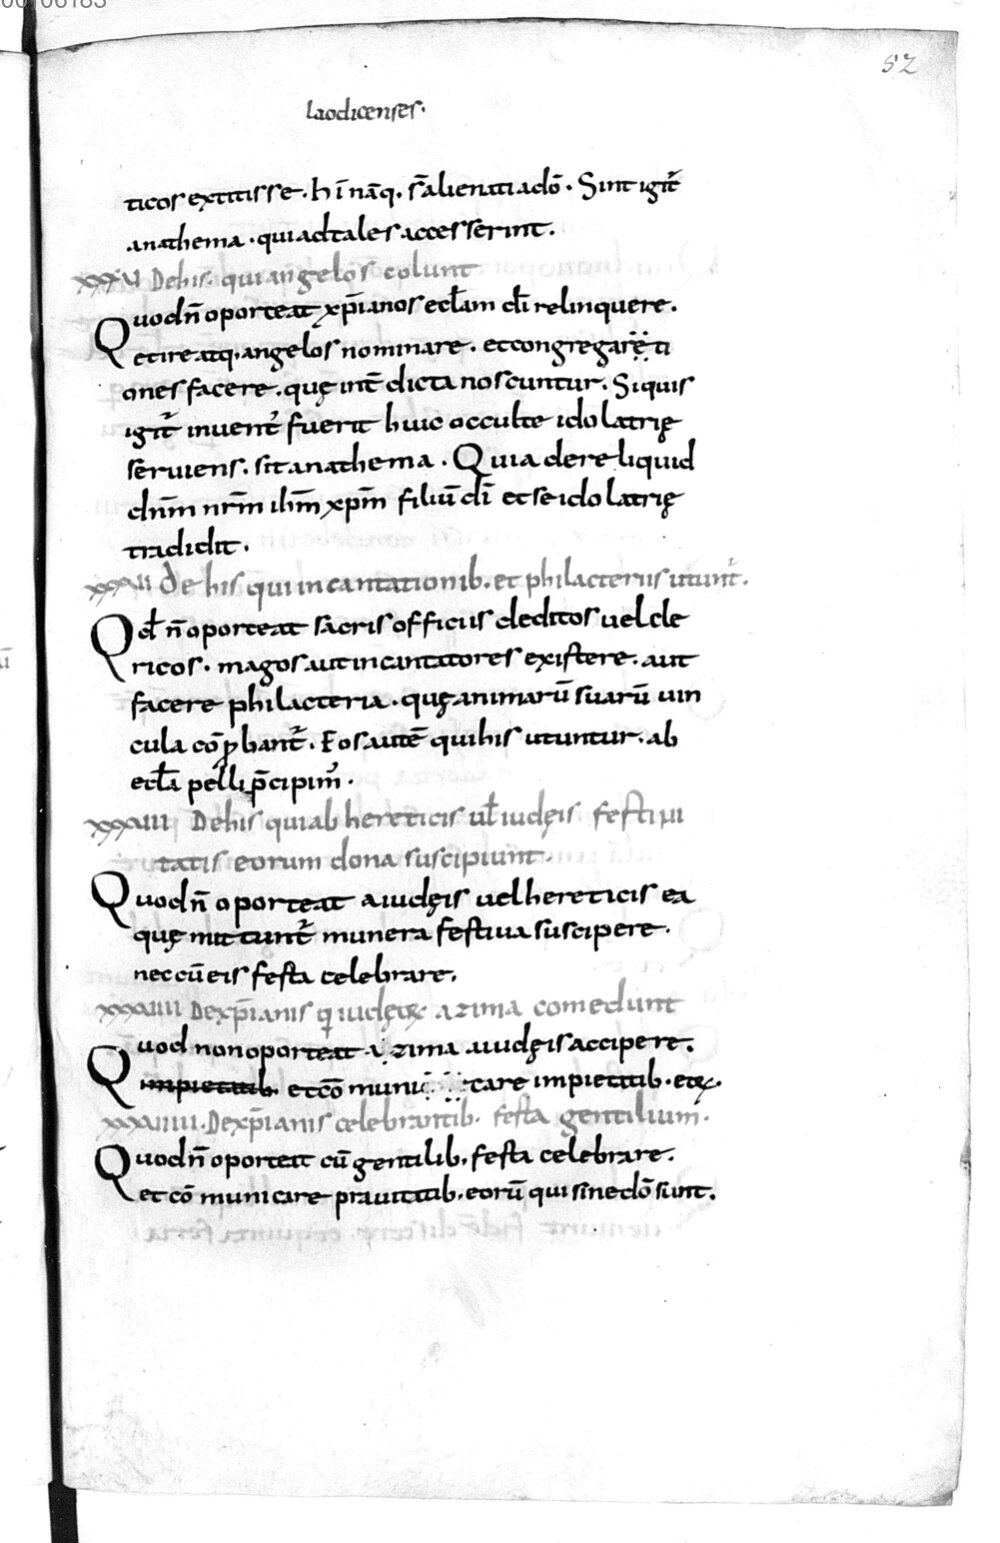 52
laodicenses.
ticos extitisse. hī nāq. s̄ alienati a dō. Sint igit̄
anathema. qui ad tales accesserint.
De his. qui angelos colunt
Quod n̄ oporteat xp̄ianos eccłam dī relinquere.
et ire atq. angelos nominare. et congregati
ones facere. quę int̄ dicta noscuntur. Siquis
igit̄ invent᾽ fuerit huic occulte idolatrię
serviens. sit anathema. Quia dereliquid
dn̄m nr̄m ih̄m xp̄m filiū dī et se idolatrię
tradidit.
xxxvi de his qui incantationib. et philacteriis utunt᾽.
Qd̄ n̄ oporteat sacris officiis deditos vel cle
ricos. magos aut incantatores existere. aut
facere philacteria. quę animarū suarū vin
cula cōp̱bant᾽. Eos autē qui his utuntur. ab
eccła pelli p̄cipim᾽.
xxxvii De his qui ab hereticis vł iudęis festivi
tatis eorum dona suscipiunt.
Quod n̄ oporteat a iudęis vel hereticis ea
quę mittunt᾽ munera festiva suscipere.
nec cū eis festa celebrare.
xxxviii De xp̄ianis q̇ iudęoꝝ azima comedunt
Quod non oporteat azima a iudęis accipere.
impietatib. et cōmunicare impietatib. eoꝝ.
xxxviiii. De xp̄ianis celebrantib. festa gentilium.
Quod n̄ oporteat cū gentilib. festa celebrare.
et cōmunicare pravitatib. eorū qui sine dō sunt.